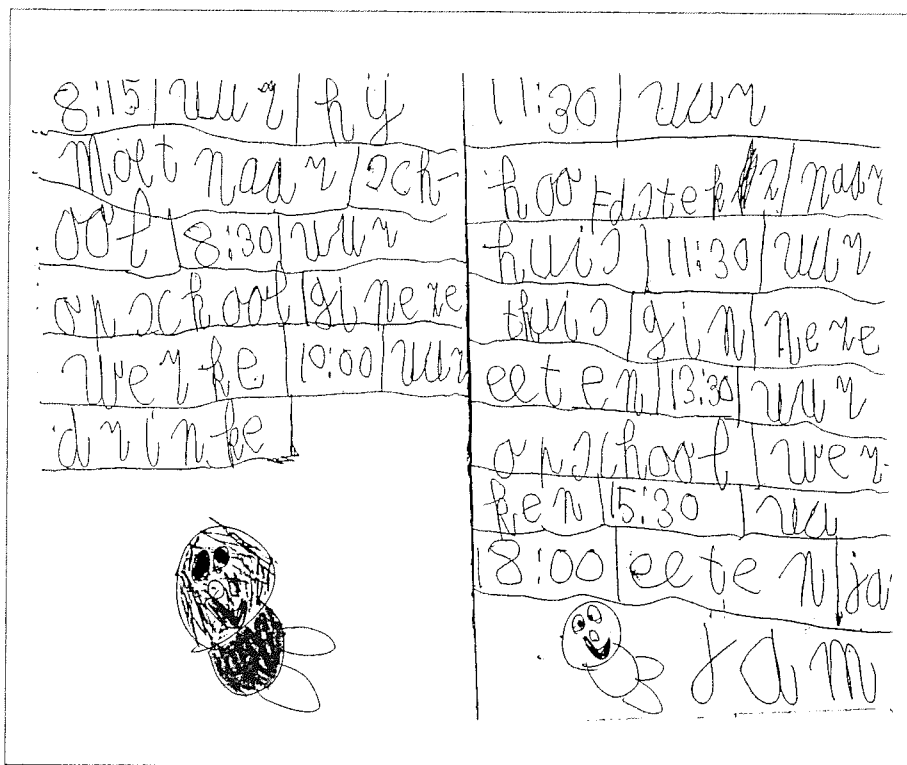 8:15 uur hij
Moet naar sch-
ool 8:30 uur
opschool ginere
werke 10:00 uur
drinke
11:30 uur
naar
huis 11:30 uur
thuis gin nere
eeten 13:30 uur
opschool wer-
ken 15:30 uu
18:00 eeten ja
jam